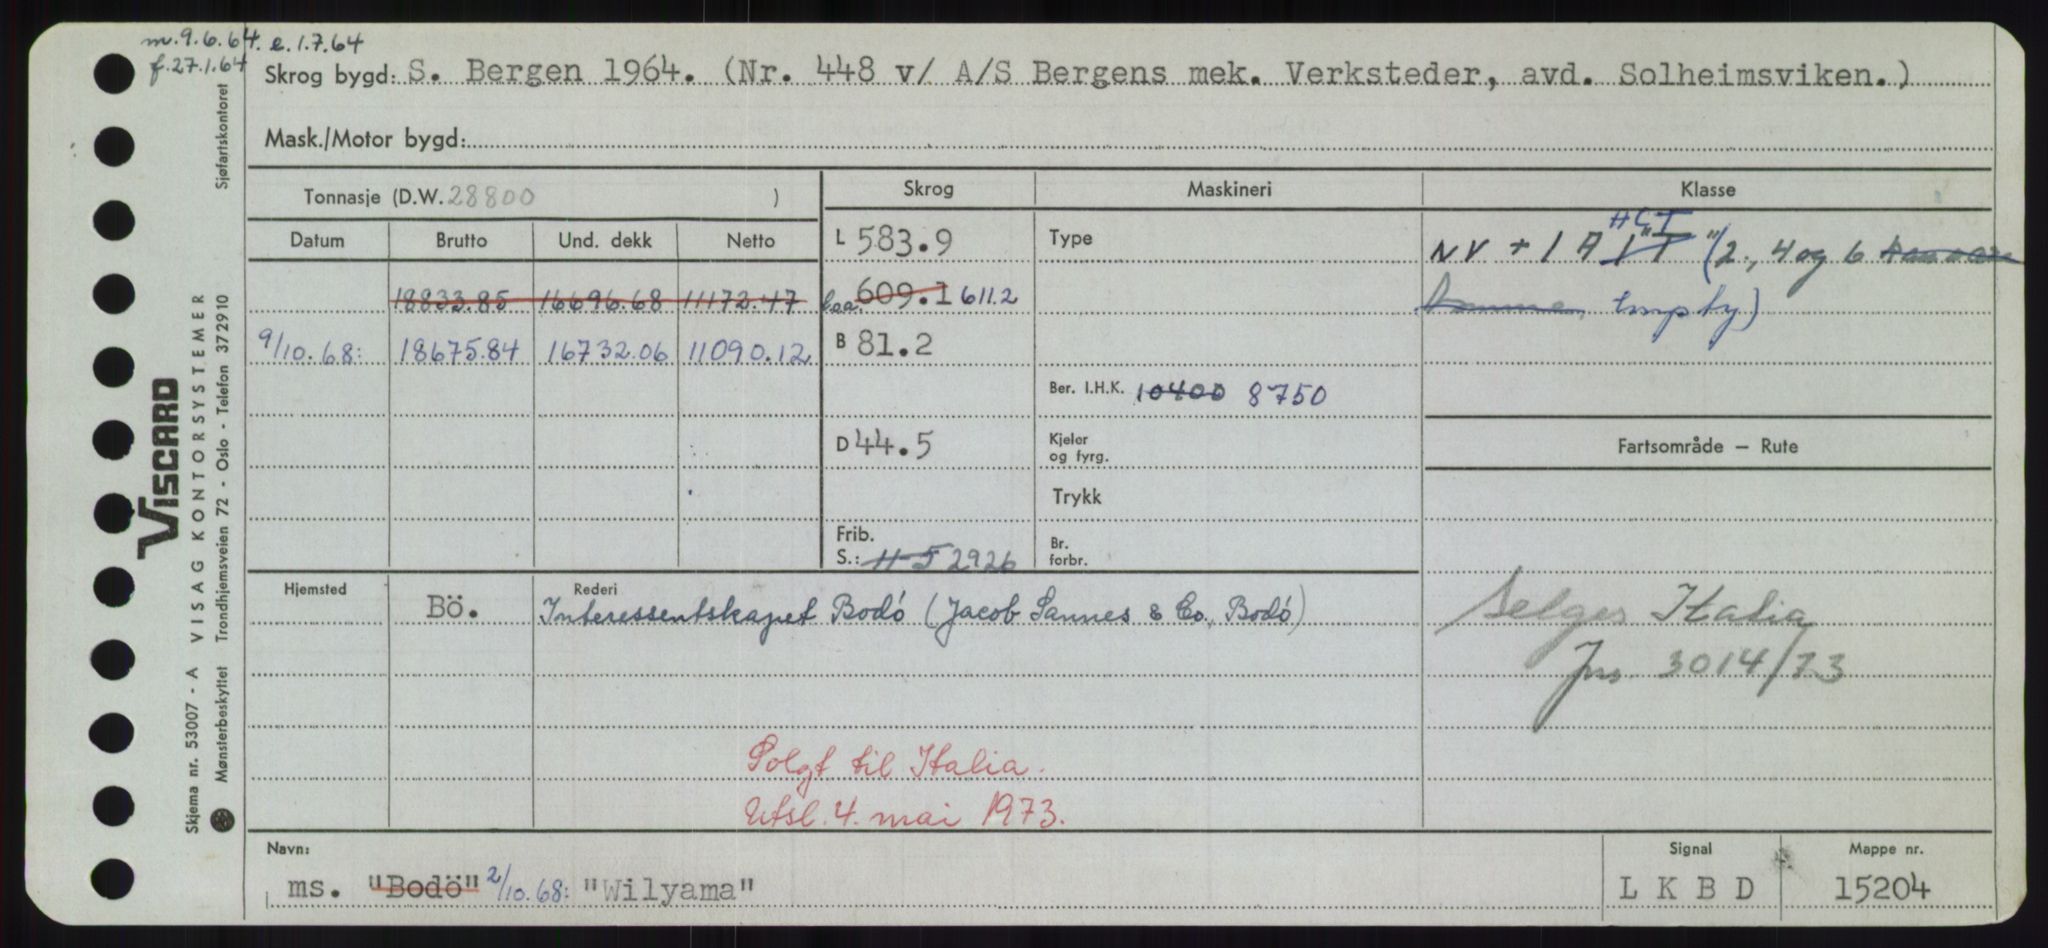 m. 9.6.64. e. 1.7.64
f. 27.1.64
Skrog bygd: S. Bergen 1964. (Nr. 448 v/ A/S Bergens mek. Verksteder, avd. Solheimsviken.)
Mask./Motor bygd:
Tonnasje (D.W. 28800 )
Skrog
Maskineri
Klasse
Datum Brutto Und. dekk Netto
L 583.9
Type
HGT
NV + 1 A 1 "T" (2., 4 og 6
18833.85 16696.68 11172.47
Loa. 609.1 611.2
tmpty)
9/10.68: 18675.84 16732.06 11090.12
B 81.2
Ber. I.H.K. 10400 8750
D 44.5
Kjeler
og fyrg.
Fartsområde — Rute
Trykk
Frib.
S.: 11-5 2926
Br.
forbr.
Hjemsted
Bö.
Rederi
Interessentskapet Bodö (Jacob Sannes & Co., Bodö)
Selges Italia
Jns. 3014/73
Solgt til Italia.
Utsl. 4. mai 1973.
Navn:
ms. "Bodö" 2/10.68: "Wilyama"
Signal
L K B D
Mappe nr.
15204
VISCARD
Skjema nr. 53007 - A VISAG KONTORSYSTEMER
Mønsterbeskyttet Trondhjemsveien 72 - Oslo - Telefon 372910 Sjøfartskontoret